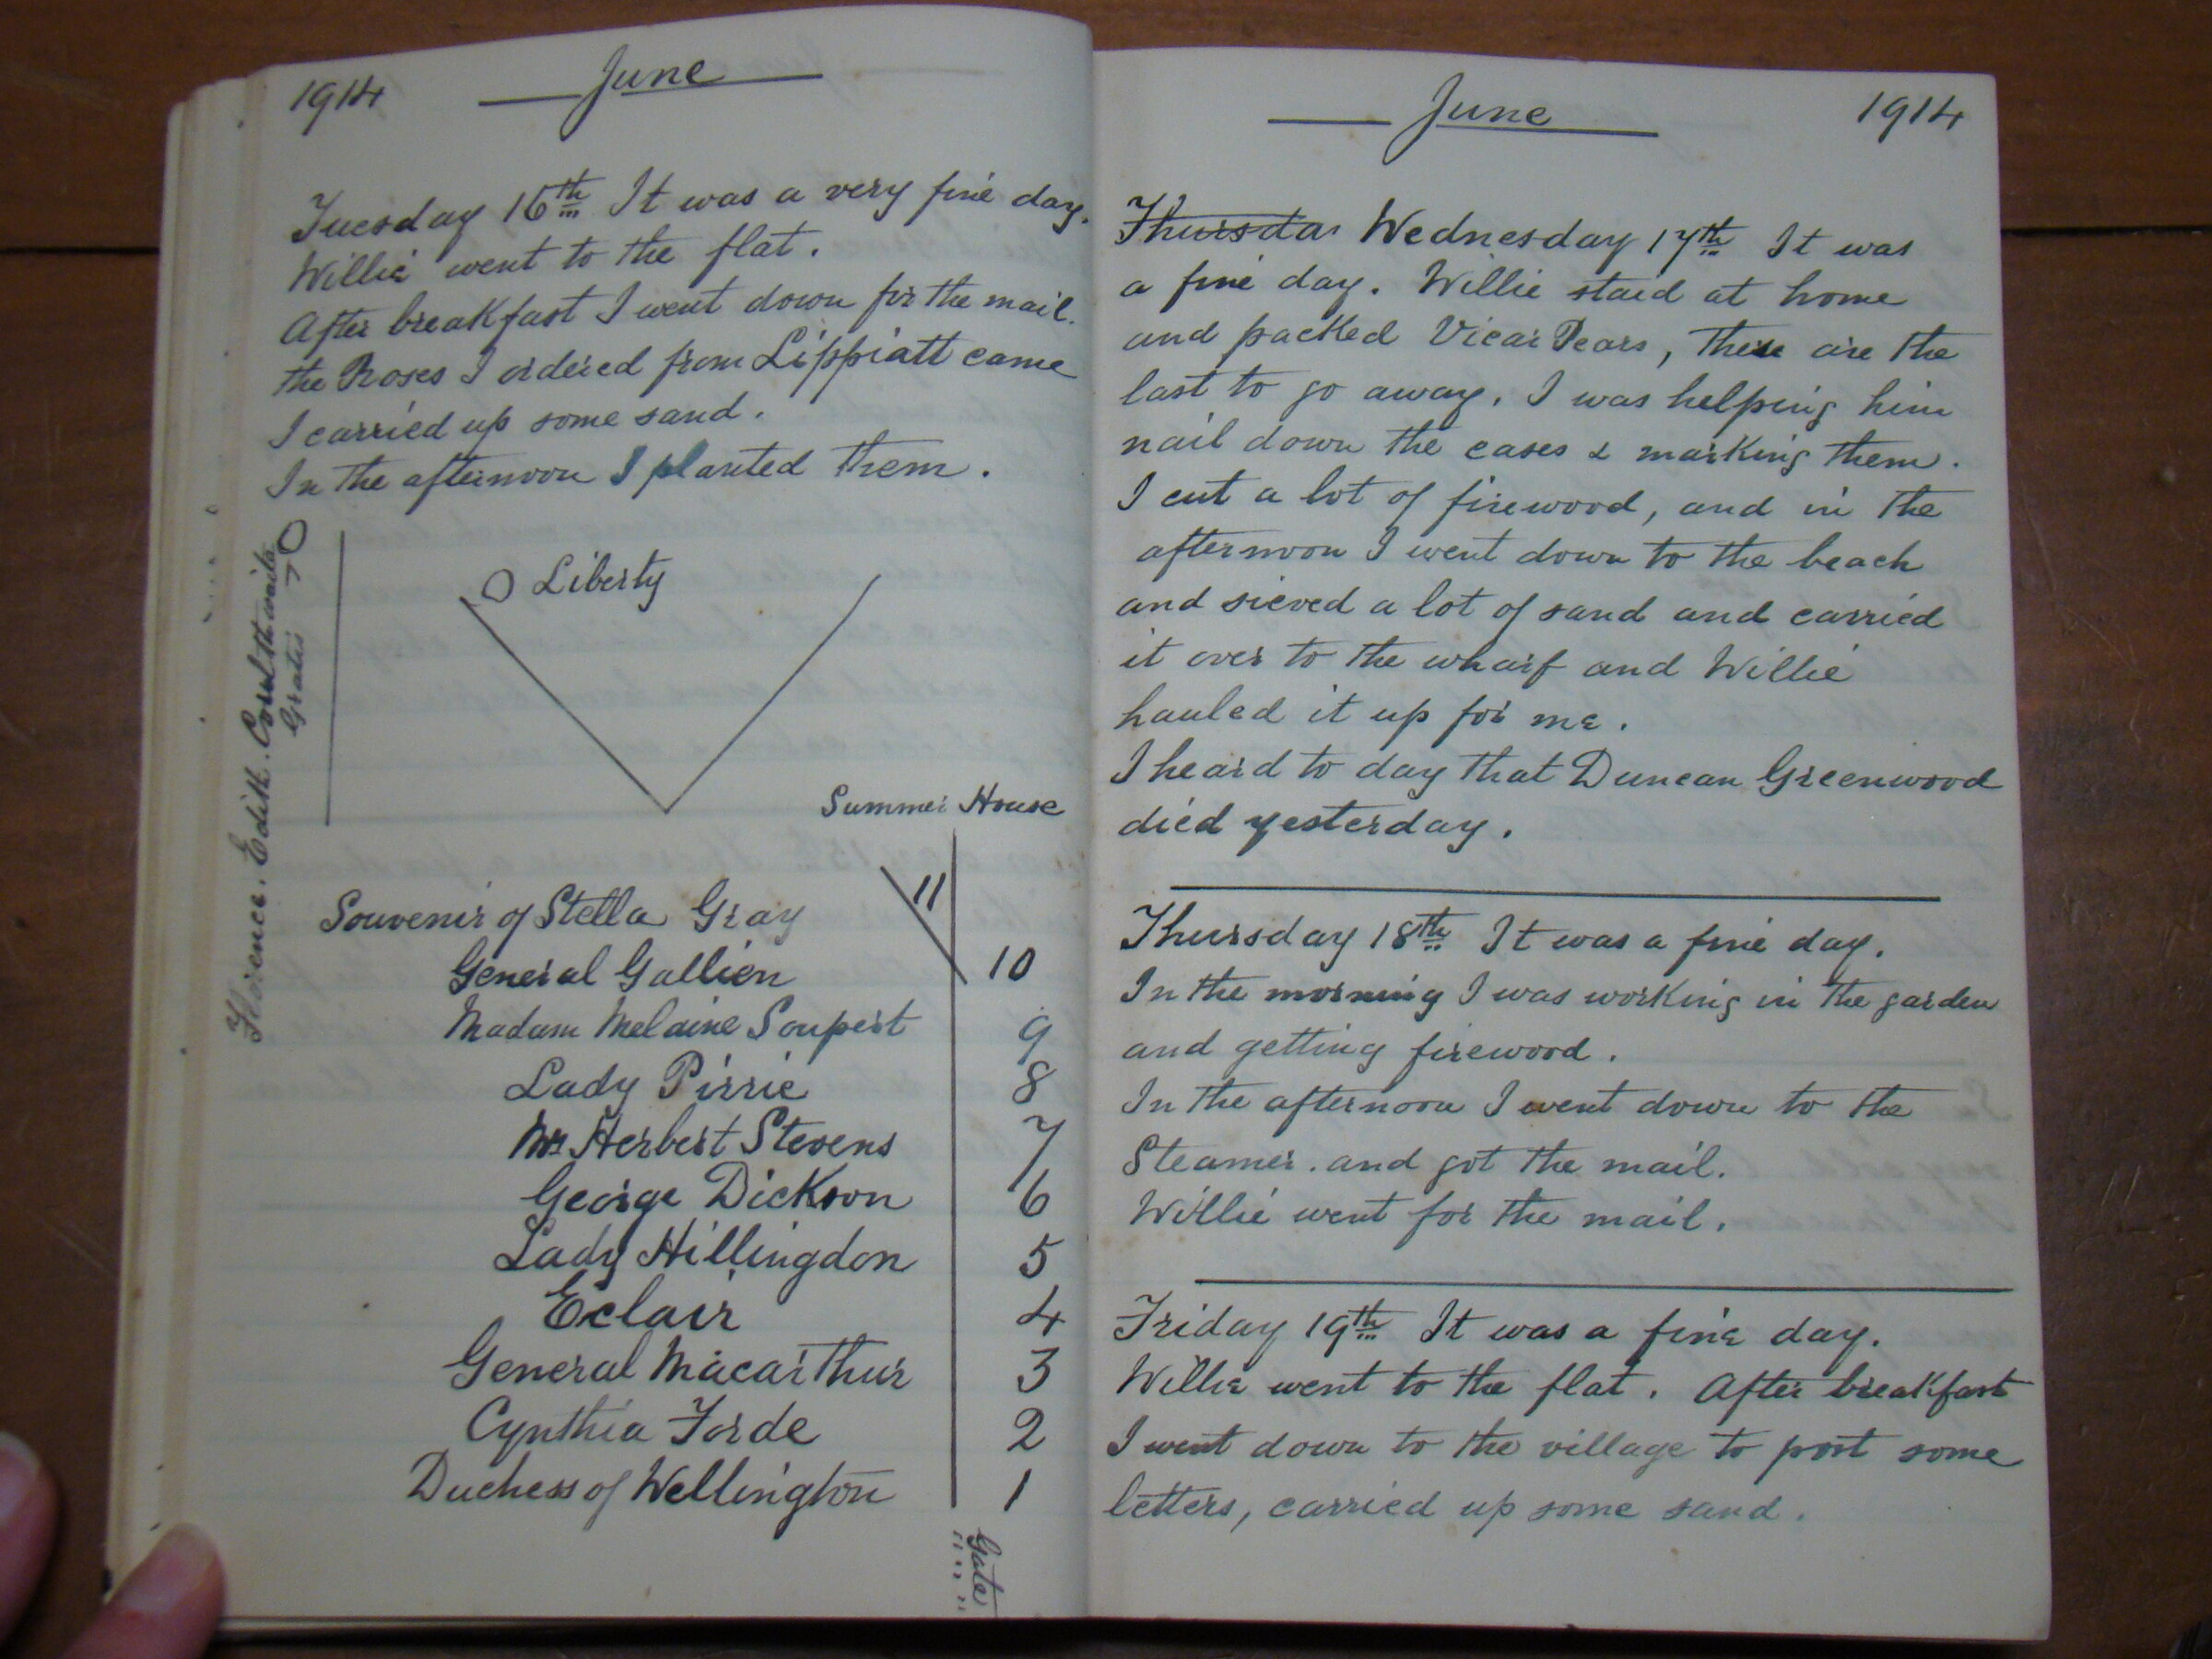 1914
June
Tuesday 16th It was a very fine day.
Willie went to the flat.
After breakfast I went down for the mail.
the Roses I ordered from Lippiatt came
I carried up some sand.
In the afternoon I planted them.
Florence. Edith. Coulthwaite
Gratis
Liberty
Summer House
Souvenir of Stella Gray 11
General Gallien 10
Madam Melaine Soupert 9
Lady Pirrie 8
Mrs Herbert Stevens 7
George Dickson 6
Lady Hillingdon 5
Eclair 4
General Macarthur 3
Cynthia Forde 2
Duchess of Wellington 1
Gate
June
1914
Thursda Wednesday 17th It was
a fine day. Willie staid at home
and packed Vicar Pears, These are the
last to go away. I was helping him
nail down the cases & marking them.
I cut a lot of firewood, and in the
afternoon I went down to the beach
and sieved a lot of sand and carried
it over to the wharf and Willie
hauled it up for me.
I heard to day that Duncan Greenwood
died yesterday.
Thursday 18th It was a fine day.
In the morning I was working in the garden
and getting firewood.
In the afternoon I went down to the
Steamer. and got the mail.
Willie went for the mail.
Friday 19th It was a fine day.
Willie went to the flat. After breakfast
I went down to the village to post some
letters, carried up some sand.